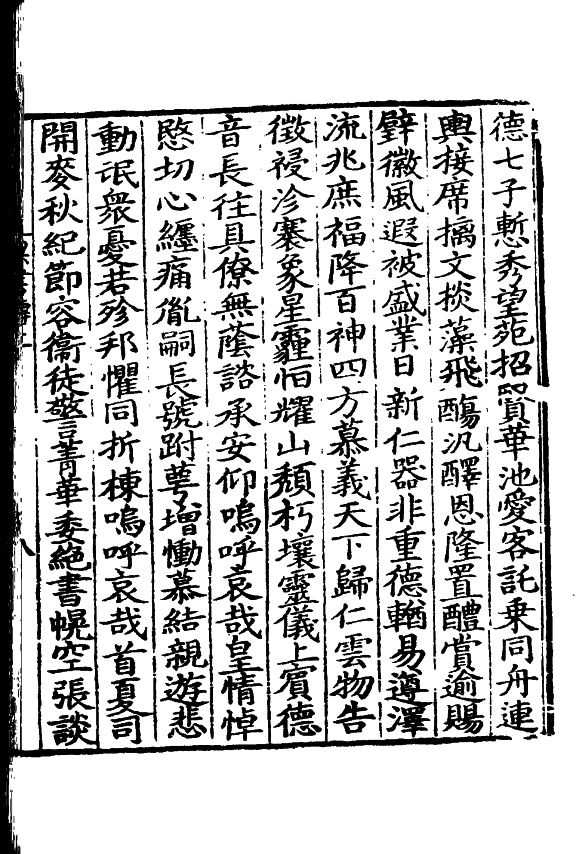 德七子慙秀望苑招賢華池愛客託乗同舟連
輿接席摛文掞藻飛觴汎醳恩隆置醴賞逾賜
璧徽風遐被盛業日新仁器非重德輶易遵澤
流兆庶福降百神四方慕義天下歸仁雲物告
徵祲沴褰象星霾恒耀山頽朽壤靈儀上賓德
音長往具僚無蔭諮承安仰嗚呼哀哉皇情悼
愍切心纏痛胤嗣長號跗萼增慟慕結親遊悲
動氓衆憂若殄邦懼同折棟嗚呼哀哉首夏司
開麥秋紀節容衞徒警菁華委絶書幌空張談
八